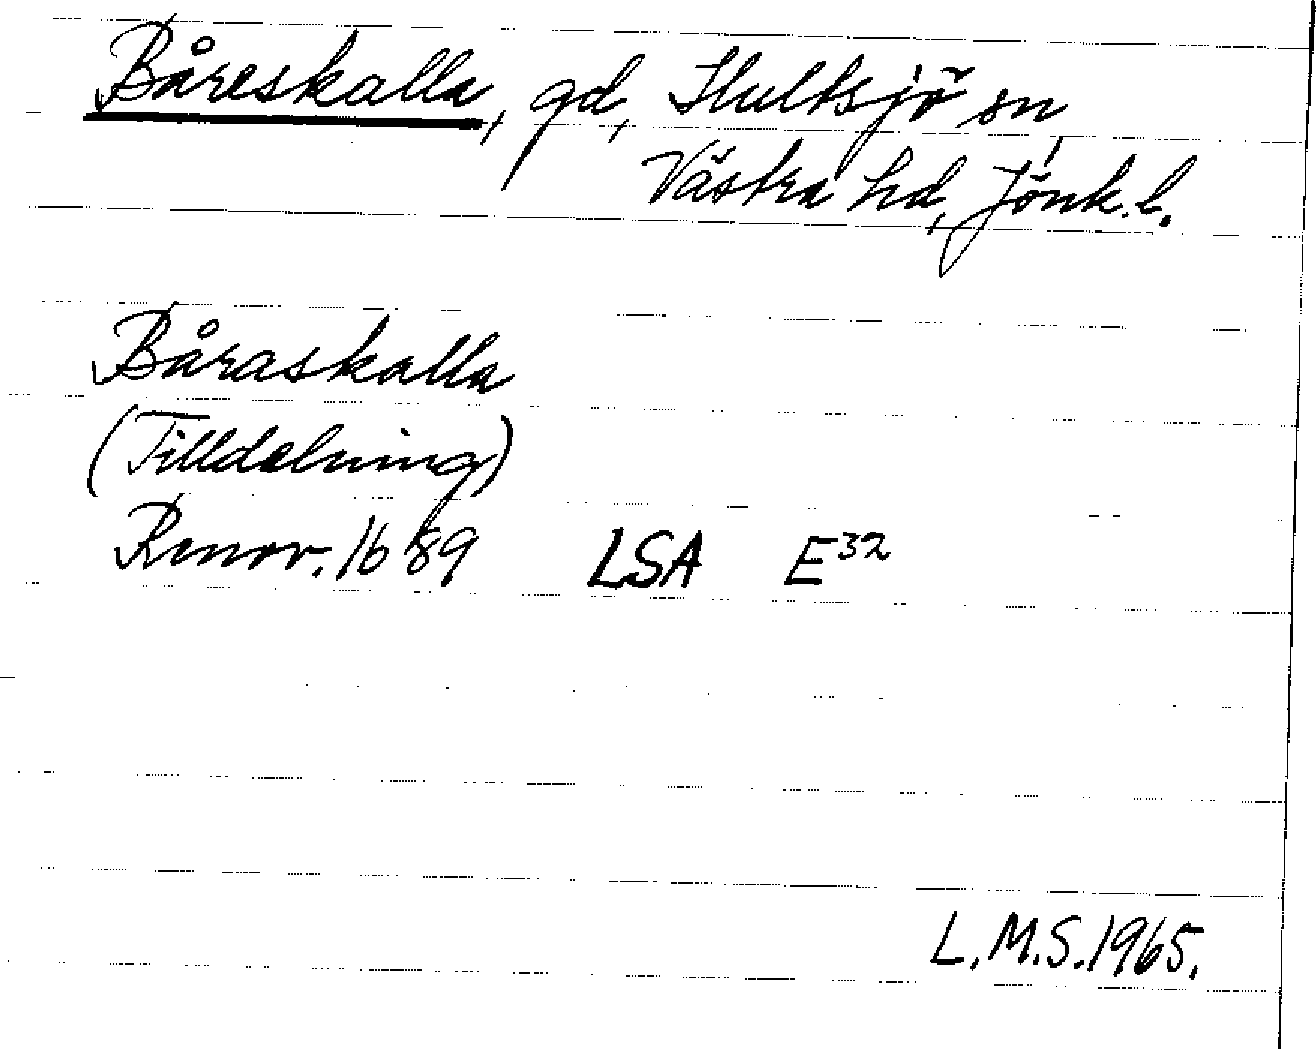 Båreskalla, gd, Hultsjö sn,
Västra hd, Jönk. l.
Båraskalla
(Tilldelning)
Renov. 1689 LSA E32
L.M.S. 1965.